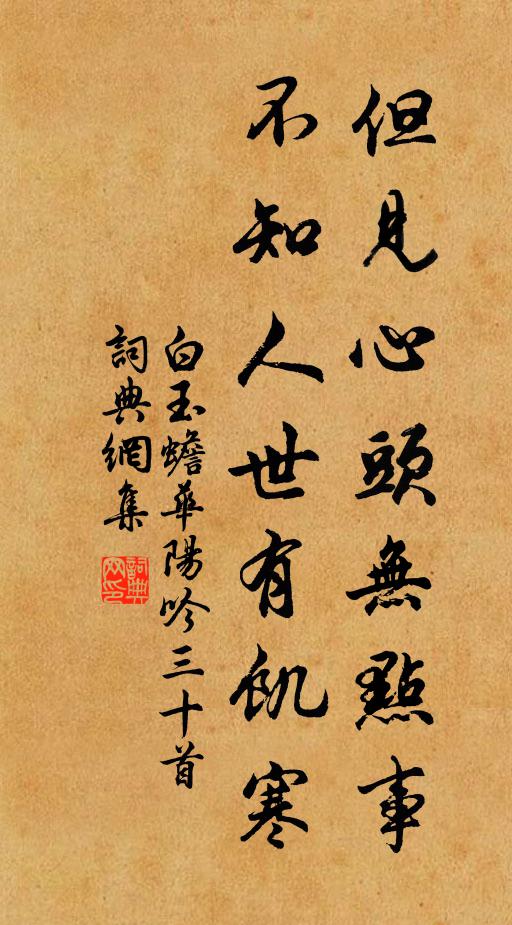 但見心頭無點事
不知人世有飢寒
白玉蟾華陽吟三十首
詞典網集
詞典網印